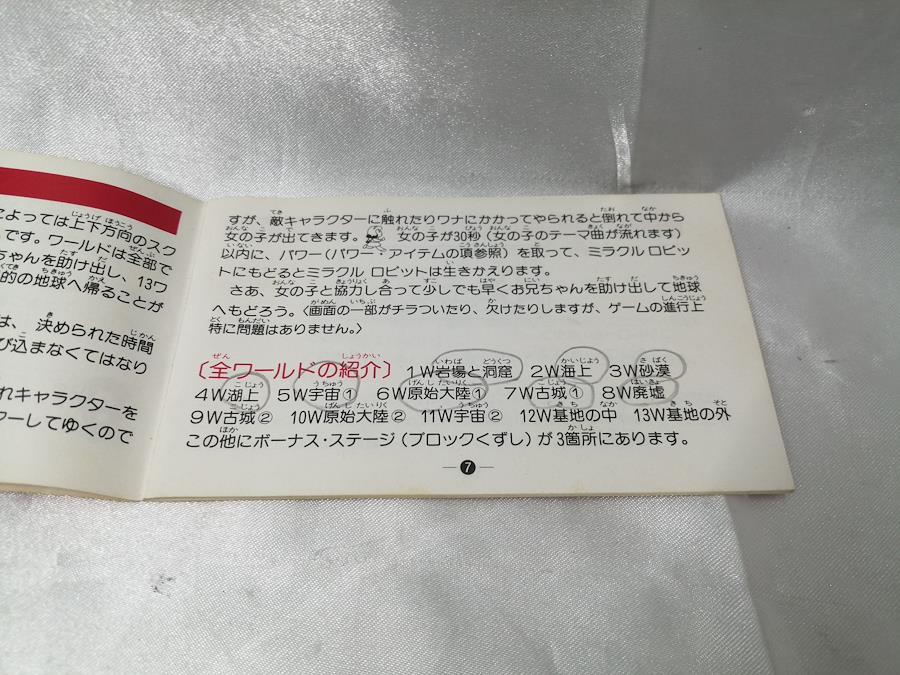 によっては上下方向のスク
です。ワールドは全部で
ちゃんを助け出し、13ワ
的の地球へ帰ることが
は、決められた時間
び込まなくてはなり
れキャラクターを
ワーしてゆくので
すが、敵キャラクターに触れたりワナにかかってやられると倒れて中から
女の子が出てきます。女の子が30秒(女の子のテーマ曲が流れます)
以内に、パワー(パワー・アイテムの項参照)を取って、ミラクル ロピッ
トにもどるとミラクル ロピットは生きかえります。
さあ、女の子と協力し合って少しでも早くお兄ちゃんを助け出して地球
へもどろう。〈画面の一部がチラついたり、欠けたりしますが、ゲームの進行上
特に問題はありません。〉
〔全ワールドの紹介〕 1W岩場と洞窟 2W海上 3W砂漠
4W湖上 5W宇宙① 6W原始大陸① 7W古城① 8W廃墟
9W古城② 10W原始大陸② 11W宇宙② 12W基地の中 13W基地の外
この他にボーナス・ステージ(ブロックくずし)が3箇所にあります。
7